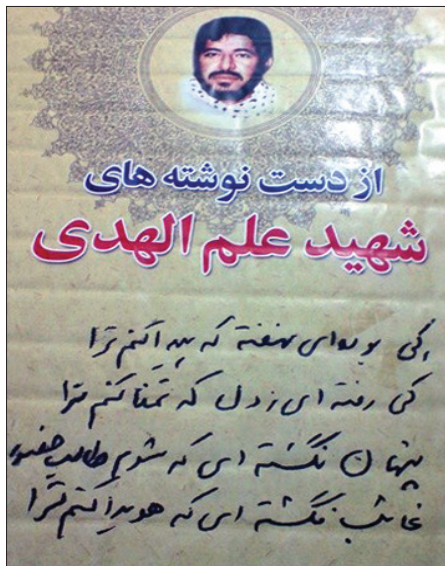 از دست نوشته های
شهید علم الهدی
کی بوده‌ای نهفته که پیدا کنم ترا
کی رفته ای ز دل که تمنا کنم ترا
پنهان نگشته ای که شوم طالب حضور
غائب نگشته ای که هویدا کنم ترا